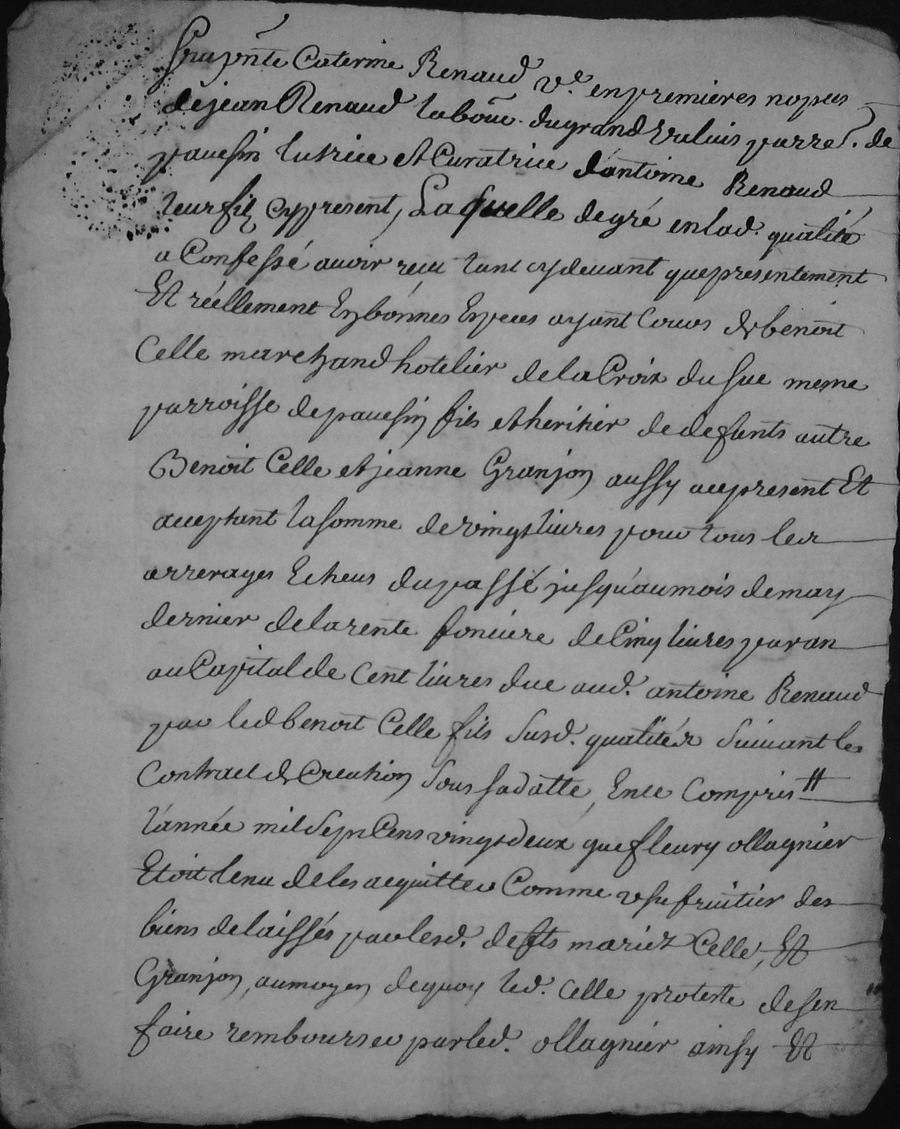 fut pnte Caterine Renaud ve. en premieres nopces
de jean Renaud labour. du grand Valuis parre. de
pavesin tutrice et Curatrice d'antoine Renaud
leur fil cy present, Laquelle de gré en lad. qualité
a Confessé avoir receu tant cy devant que presentement
Et réellement En bonnes Especes ayant Cours de benoit
Celle marchand hotelier de la Croix du sue meme
parroisse de pavesin fils et heritier de defunts autre
Benoit Celle et jeanne Granjon aussy acpresent Et
aceptant la somme de vingt livres pour tous les
arrerages Echeus du passé jusqu'au mois de may
dernier de la rente fonciere de Cinq livres par an
au Capital de Cent livres due aud. antoine Renaud
par led benoit Celle fils susd. qualités suivant les
Contract de Creation sous sa datte, En ce Compris
l'année mil sept Cens vingt deux que fleury ollagnier
Etoit tenu de les acquitter Comme usufruitier des
biens delaissés par lesd. defts mariez Celle, Et
Granjon, au moyen de quoy led. Celle proteste de sen
faire rembourser par led. ollagnier ainsy Et